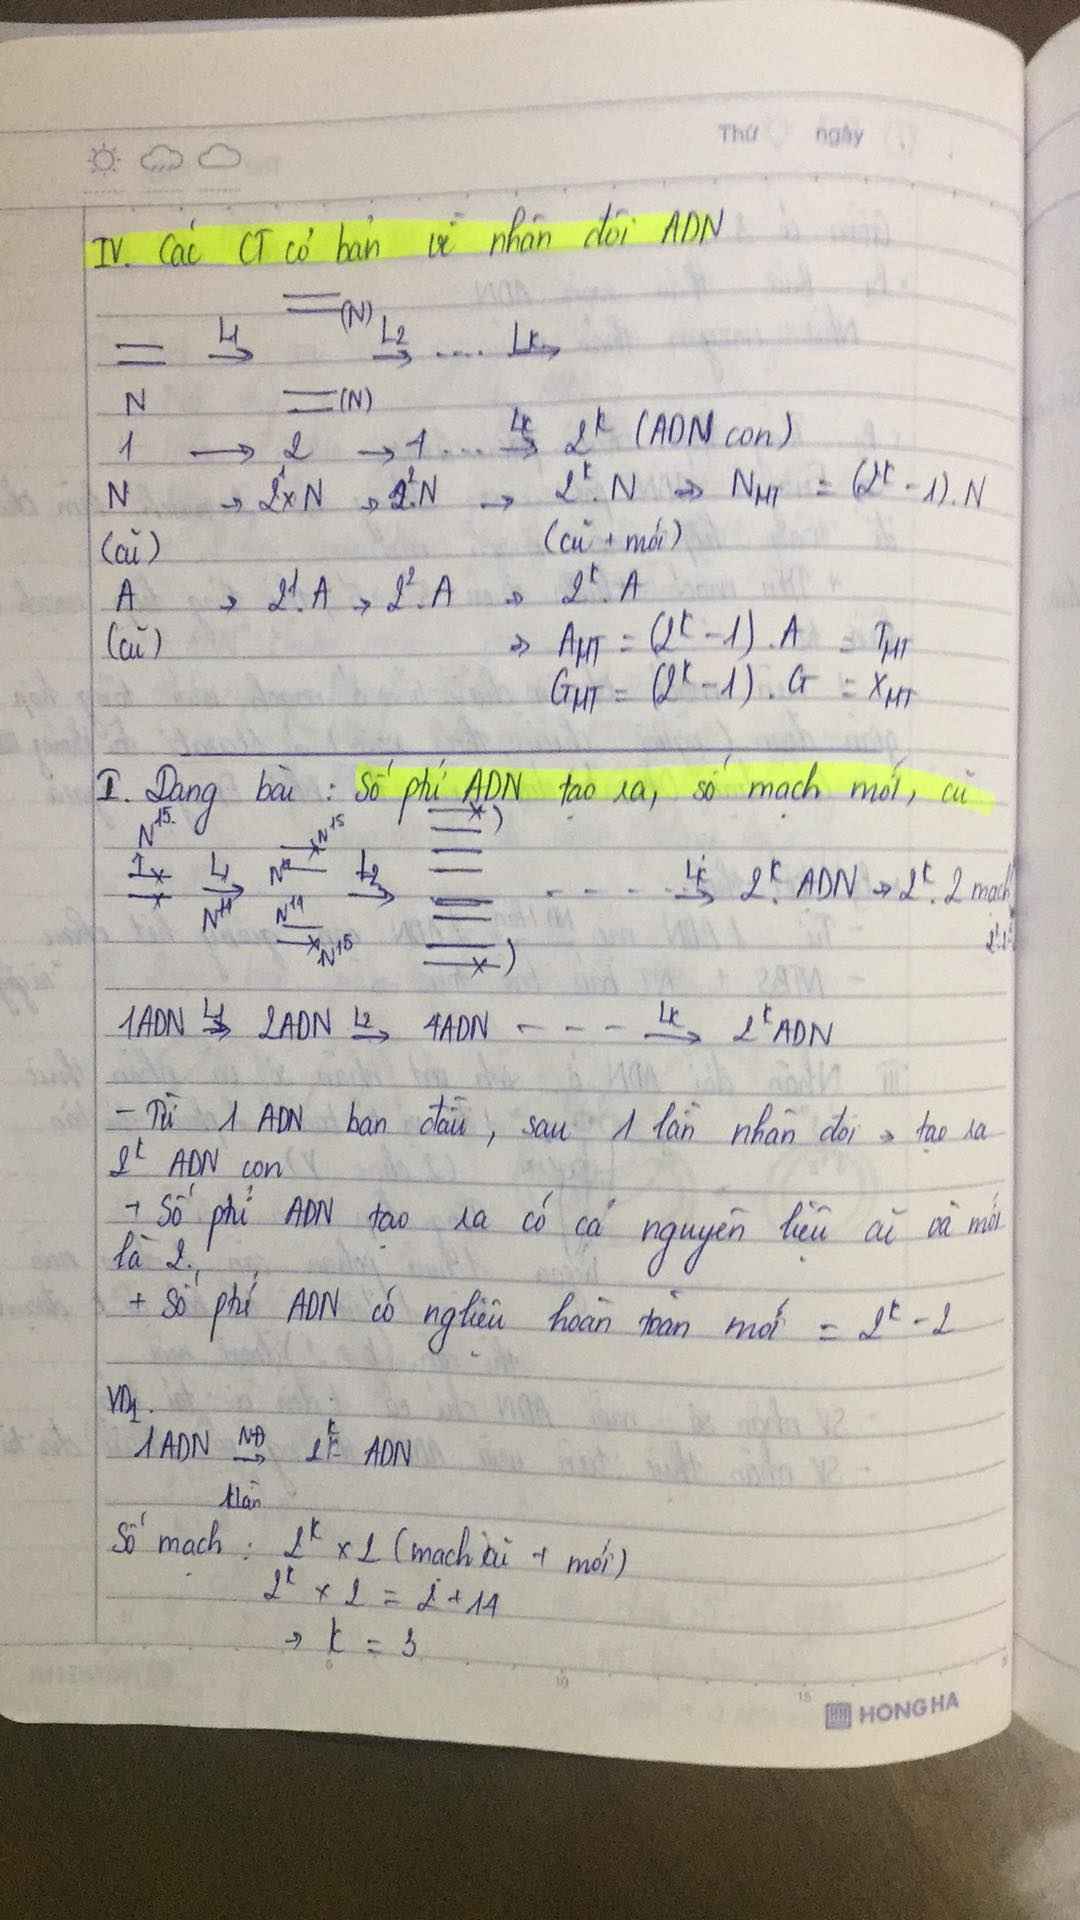 Thứ ngày
IV. Các CT cơ bản về nhân đôi ADN
(N)
L1 L2 .... Lk
N (N)
1 → 2 → 4 .... Lk → 2^k (ADN con)
N → 2^1×N → 2^2.N → 2^k.N ⇒ N_MT = (2^k - 1).N
(cũ) (cũ + mới)
A → 2^1.A → 2^2.A → 2^k.A
(cũ) ⇒ A_MT = (2^k - 1).A = T_MT
G_MT = (2^k - 1).G = X_MT
I. Dạng bài : Số phtử ADN tạo ra, số mạch mới, cũ
N^15 N^15
1 L1 N^14 L2 - - - - Lk → 2^k. ADN → 2^k.2 mạch
N^14 N^14
N^15
1ADN L1→ 2ADN L2→ 4ADN - - - - Lk→ 2^k ADN
- Từ 1 ADN ban đầu, sau 1 lần nhân đôi → tạo ra
2^k ADN con
+ Số phtử ADN tạo ra có cả nguyên liệu cũ và mới
là 2.
+ Số phtử ADN có ngliệu hoàn toàn mới = 2^k - 2
VD1.
1ADN NĐ→ 2^k ADN
klần
Số mạch : 2^k × 2 (mạch cũ + mới)
2^k × 2 = 2 + 14
→ k = 3
5 10 15
HONG HA